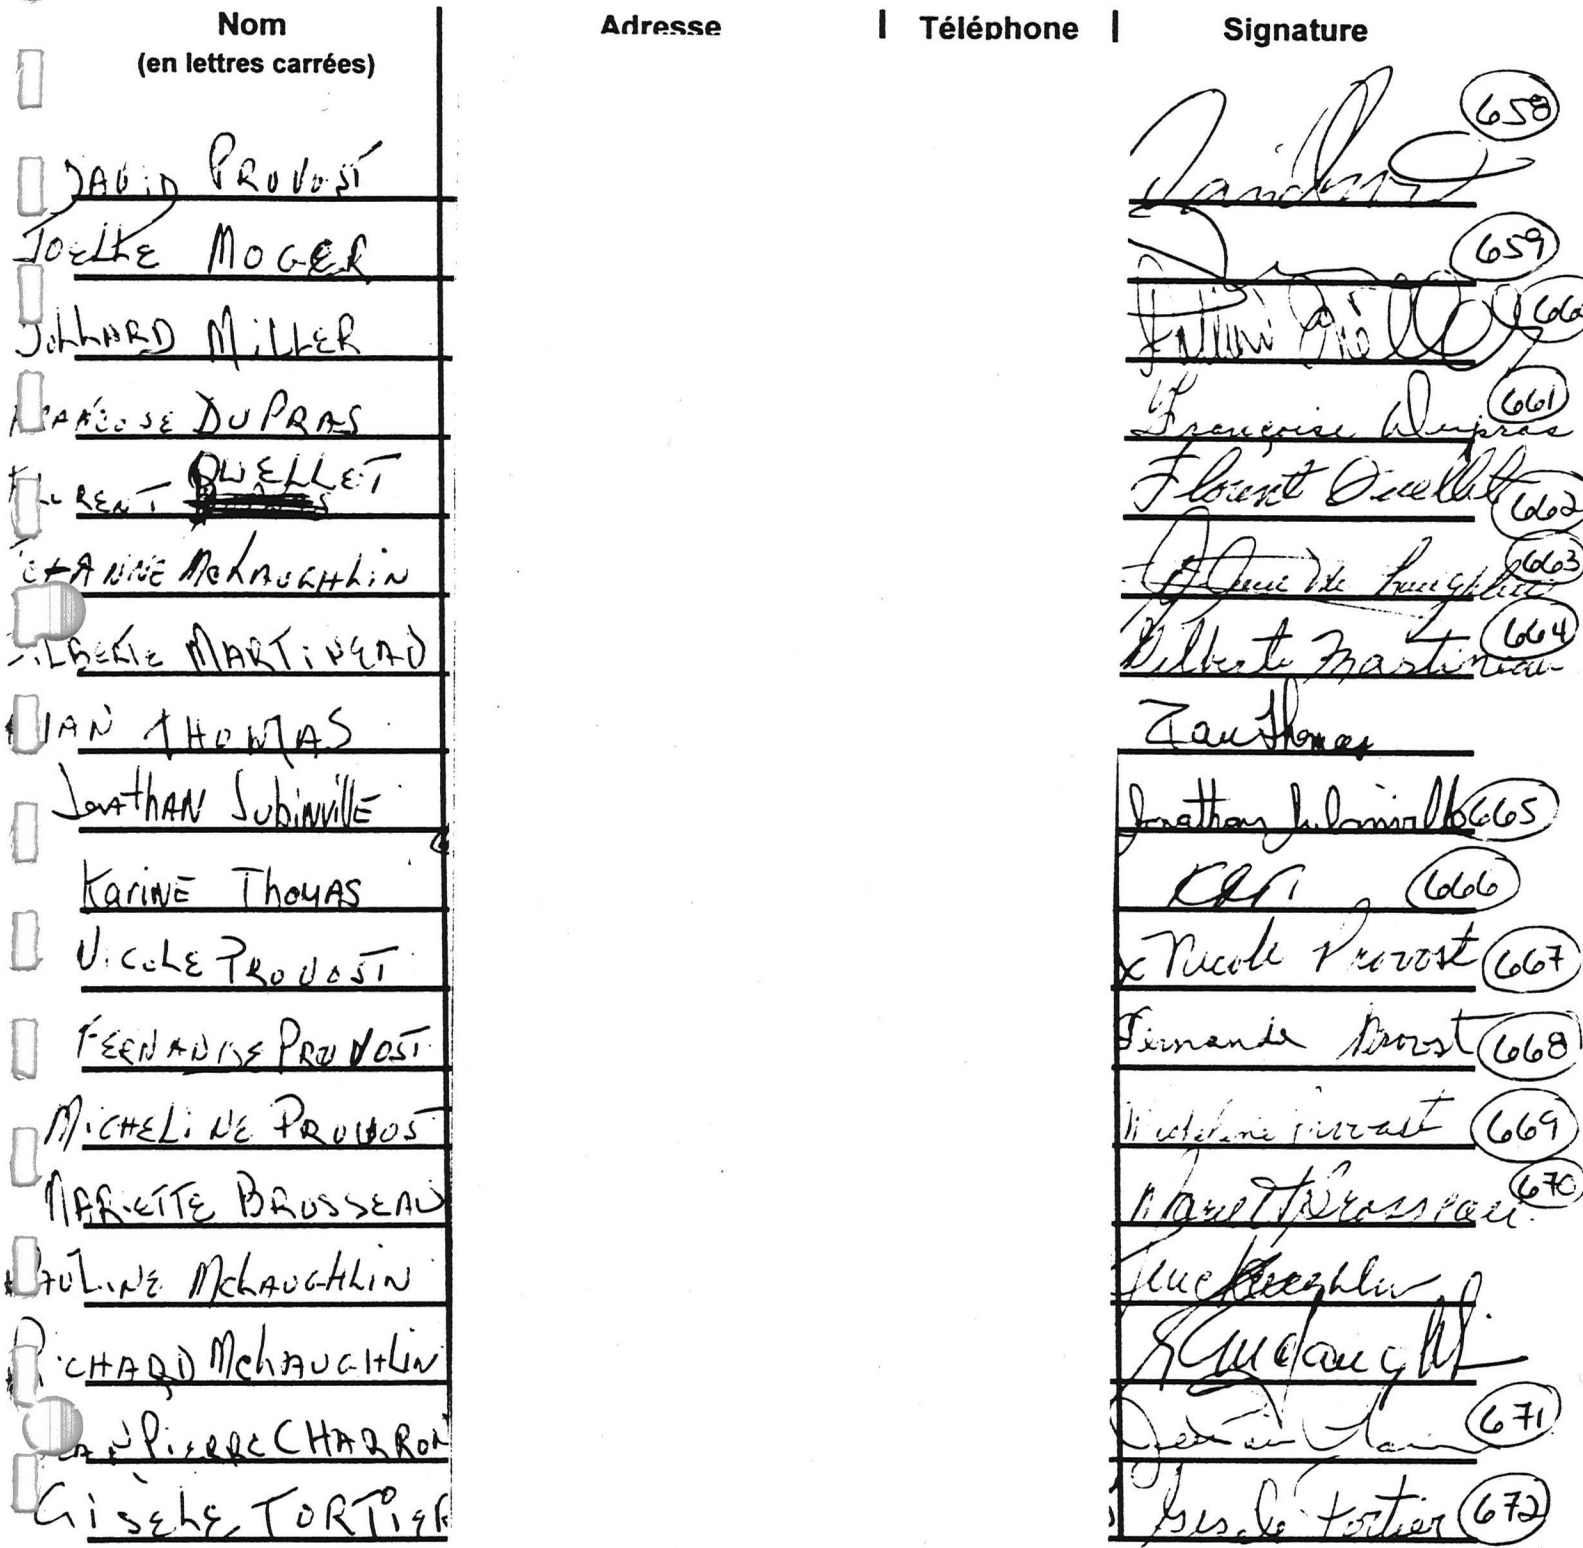 Nom Adresse Téléphone Signature
(en lettres carrées)
658
DAVID PROVOST
JOELLE MOGER 659
MILLER 660
DUPRAS Françoise Dupras 661
OUELLET Florent Ouellet 662
MCLAUGHLIN 663
MARTINEAU Gilberte Martineau 664
IAN THOMAS Ian Thomas
JONATHAN JUBINVILLE Jonathan Jubinville 665
KARINE THOMAS 666
NICOLE PROVOST x Nicole Provost 667
FERNANDE PROVOST Fernande Provost 668
MICHELINE PROVOST Micheline Provost 669
MARIETTE BROSSEAU Mariette Brosseau 670
PAULINE MCLAUGHLIN
RICHARD MCLAUGHLIN
PIERRE CHARRON 671
GISÈLE FORTIER Gisèle Fortier 672